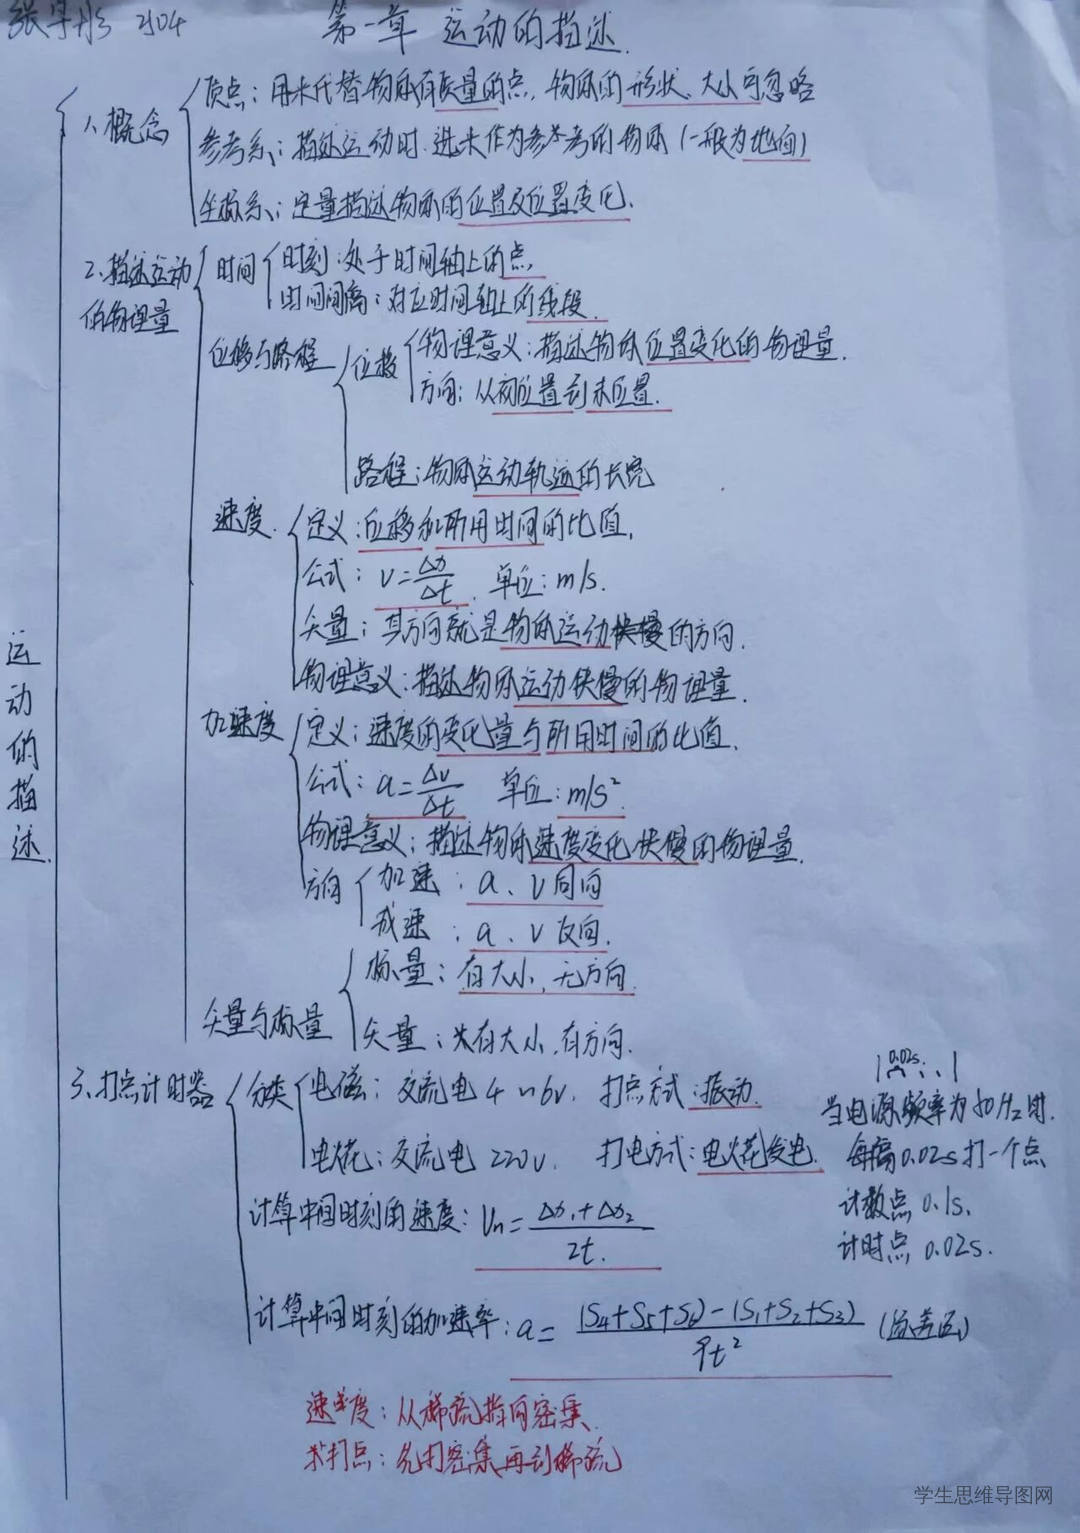 2104
第一章 运动的描述.
1、概念
质点：用来代替物体有质量的点，物体的形状、大小可忽略
参考系：描述运动时.选来作为参考的物体(一般为地面)
坐标系：定量描述物体的位置及位置变化.
2、描述运动的物理量
时间
时刻：处于时间轴上的点.
时间间隔：对应时间轴上的线段.
位移与路程
位移
物理意义：描述物体位置变化的物理量.
方向：从初位置到末位置.
路程：物体运动轨迹的长度
速度.
定义：位移和所用时间的比值.
公式：v=Δs/Δt. 单位：m/s.
矢量：其方向就是物体运动的方向.
物理意义：描述物体运动快慢的物理量.
加速度
定义：速度的变化量与所用时间的比值.
公式：a=Δv/Δt 单位：m/s².
物理意义：描述物体速度变化快慢的物理量.
方向
加速：a、v同向
减速：a、v反向.
矢量与标量
标量：有大小，无方向.
矢量：有大小，有方向.
运动的描述.
3、打点计时器
分类
电磁：交流电4~6v. 打点方式：振动.
电火花：交流电220v. 打电方式：电火花发电.
0.02s
当电源频率为50Hz时.
每隔0.02s打一个点
计数点0.1s.
计时点0.02s.
计算中间时刻的速度：Vn=(Δs₁+Δs₂)/2t.
计算中间时刻的加速率：a=((S4+S5+S6)-(S1+S2+S3))/9t² (逐差法)
速度：从稀疏指向密集.
打点：先打密集再到稀疏
学生思维导图网